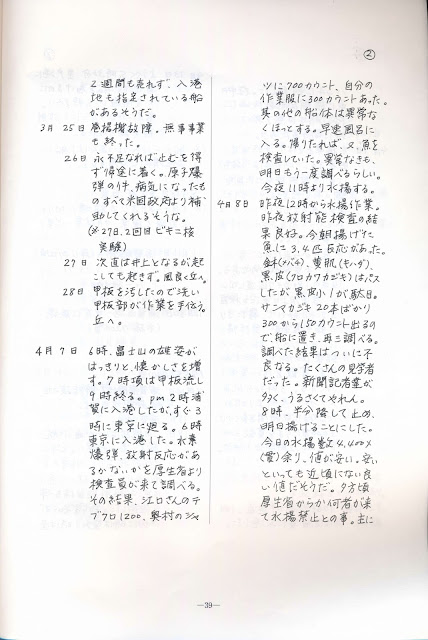 ②
２週間も売れず、入港
地も指定されている船
があるそうだ。
3月 25日 巻揚機故障、無事事業
も終った。
26日 氷不足なれば止むを得
ず帰途に着く。原子爆
弾の件、病気になったも
のすべて米国政府より補
助してくれるそうな。
(※27日、2回目ビキニ核
実験)
27日 次直は井上となるが起
こしても起きず。風良く丘へ。
28日 甲板を汚したので洗い
甲板部が作業をやるう。
丘へ。
4月 7日 6時、富士山の雄姿が
はっきりと、懐かしさを増
す。7時頃は甲板流し
9時終る。pm 2時浦
賀に入港したが、すぐ3
時に東京に廻る。6時
東京に入港した。水素
爆弾、放射反応があ
るかないかを厚生省より
検査員が来て調べる。
その結果、江口さんのテ
ブクロ1200、奥村のシャ
ツに700カウント、自分の
作業服に300カウントあった。
其の他の船体は異常な
くほっとする。早速風呂に
入る。帰りたれば、又、魚を
検査していた。異常なきも、
明日もう一度調べるらしい。
今夜11時より水揚する。
4月8日 昨夜12時から水揚作業。
昨夜放射能検査の結
果良好。今朝揚げた
魚に3、4匹反応があった。
(メバチ)、黄肌(キハダ)、
黒皮(クロカワカジキ)はパス
したが黒皮小1が駄目。
サンマカジキ20本ばかり
300から150カウント出るの
で、船に置き、再三調べる。
調べた結果はついに不
良なる。たくさんの見学者
だった。新聞記者達が
多く、うるさくてやれん。
8時、半分降して止め、
明日揚げることにした。
今日の水揚数4,400メ
(貫)余り、値が安い。安い
といっても近頃にない良
い値だそうだ。夕方頃
厚生省からか何者が来
て水揚禁止との事。主に
—39—